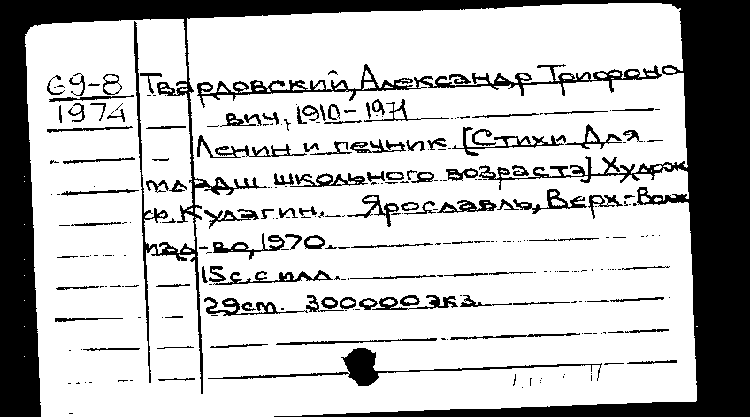 69-8 Твардовский, Александр Трифоно
1974 вич, 1910-1971
Ленин и печник [Стихи Для
младш школьного возраста] Худож
Ф. Кулагин. Ярославль, Верх-Волж
изд-во, 1970.
15 с. с илл.
29 cm. 300000 экз.